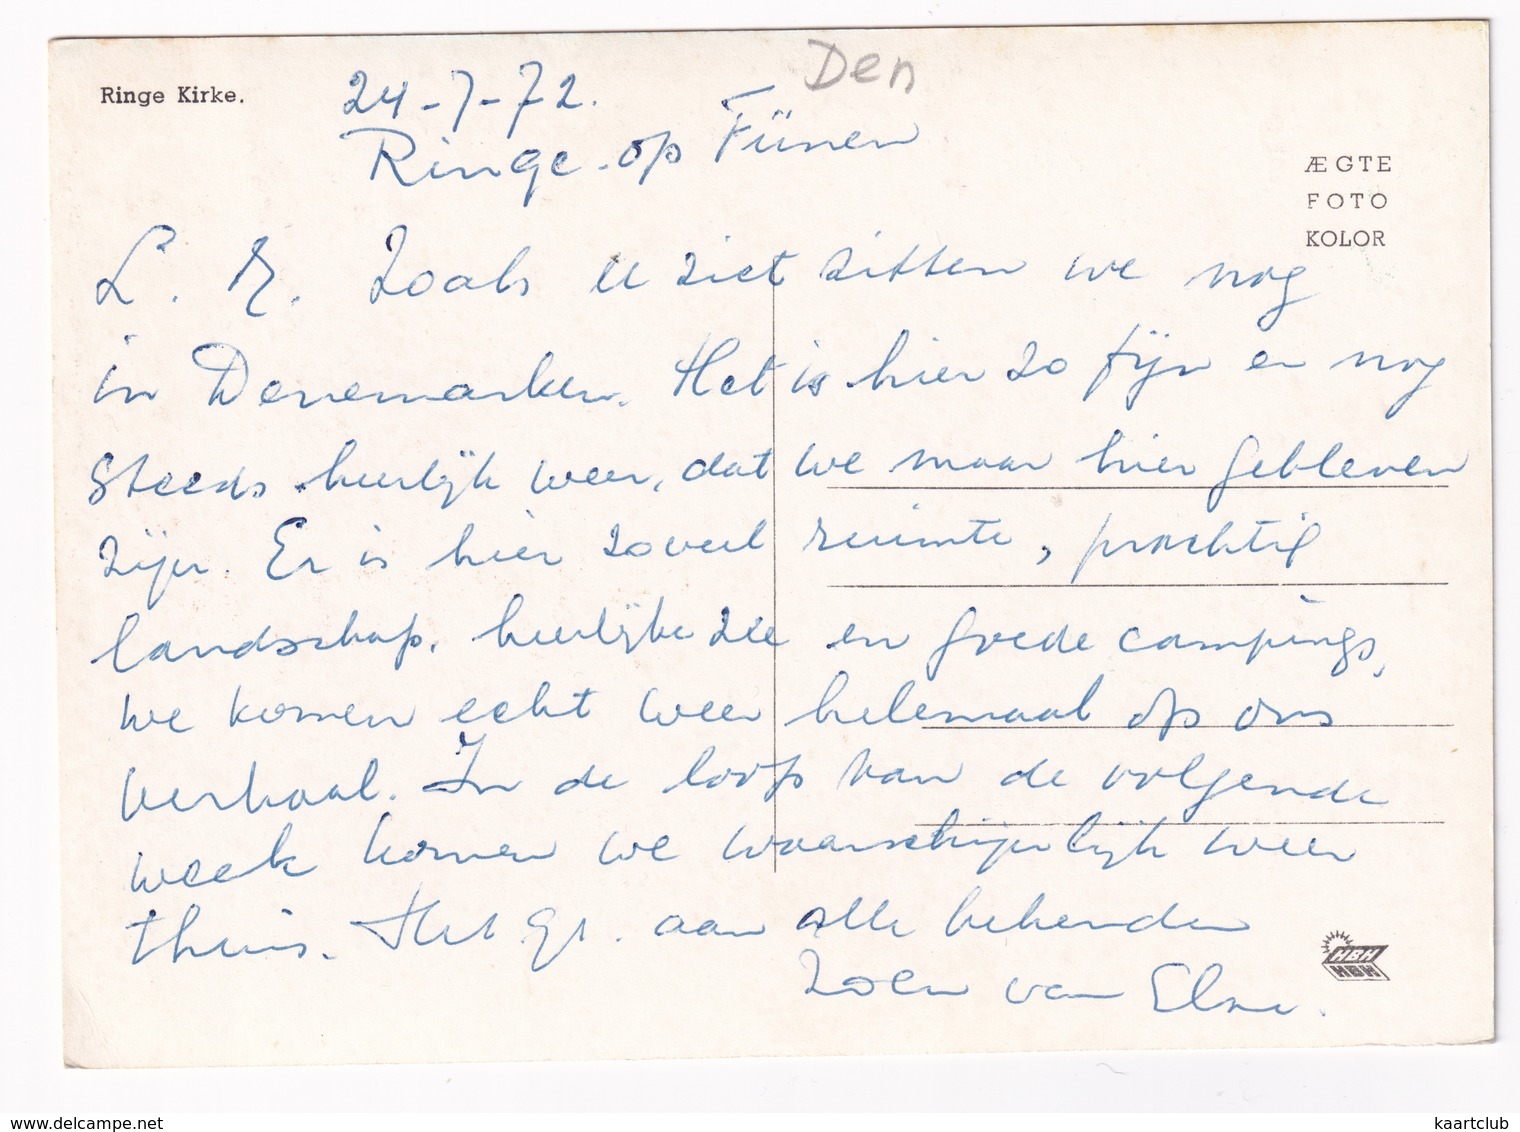 Ringe Kirke.
Den
24-7-72.
Ringe op Fünen
ÆGTE
FOTO
KOLOR
L. M. Zoals u ziet zitten we nog
in Denemarken. Het is hier zo fijn en nog
steeds heerlijk weer, dat we maar hier gebleven
zijn. Er is hier zoveel ruimte, prachtig
landschap, heerlijke zee en goede campings,
we komen echt weer helemaal op ons
verhaal. In de loop van de volgende
week komen we waarschijnlijk weer
thuis. Hart. gr. aan alle bekenden
Zoen van Elne.
HBH
HBH
delcampe.net
kaartclub